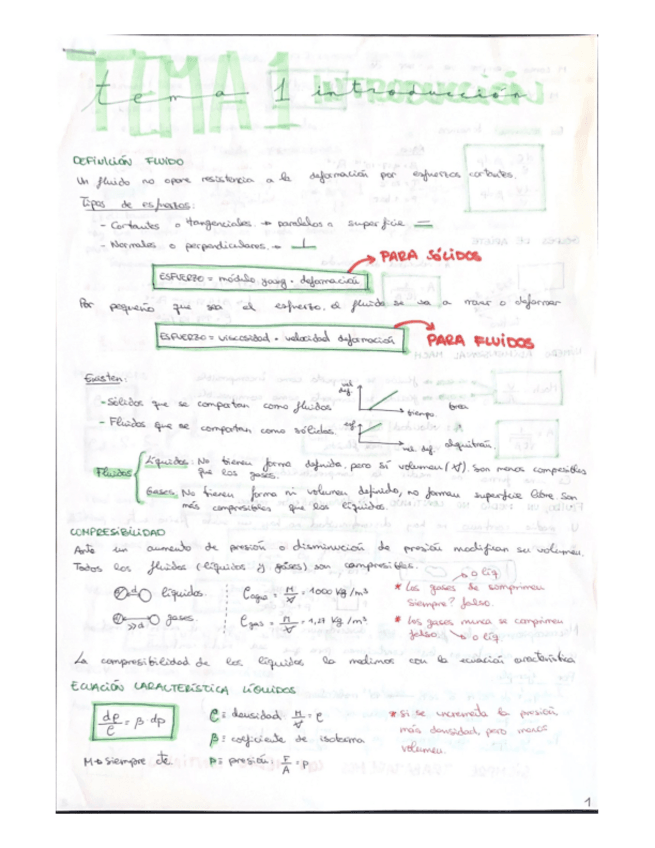 TEMA 1 INTRODUCCIÓN
tema 1 introducción
DEFINICIÓN FLUIDO
Un fluido no opone resistencia a la deformación por esfuerzos cortantes.
Tipos de esfuerzos:
- Cortantes o tangenciales → paralelos a superficie =
- Normales o perpendiculares → ⊥
PARA SÓLIDOS
ESFUERZO = módulo young · deformación
Por pequeño que sea el esfuerzo, el fluido se va a mover o deformar
ESFUERZO = viscosidad · velocidad deformación
PARA FLUIDOS
Existen:
- Sólidos que se comportan como fluidos
vel. def. tiempo
- Fluidos que se comportan como sólidos.
esf vel. def. alquitrán.
Fluidos
Líquidos: No tienen forma definida, pero sí volumen (V). Son menos compresibles
que los gases.
Gases: No tienen forma ni volumen definido, no forman superficie libre. Son
más compresibles que los líquidos.
COMPRESIBILIDAD
Ante un aumento de presión o disminución de presión modifican su volumen.
Todos los fluidos (líquidos y gases) son compresibles.
d líquidos.
ρ agua = M/V = 1000 kg/m³
>>d gases.
ρ gas = M/V = kg/m³
o líq
* Los gases se comprimen
siempre? falso.
* los gases nunca se comprimen
falso. o líq.
La compresibilidad de los líquidos la medimos con la ecuación característica
ECUACIÓN CARACTERÍSTICA LÍQUIDOS
dρ/ρ = β · dp
ρ: densidad M/V = ρ
β: coeficiente de isoterma
P: presión; F/A = P
M → siempre cte.
* si se incrementa la presión
más densidad, pero menos
volumen.
1